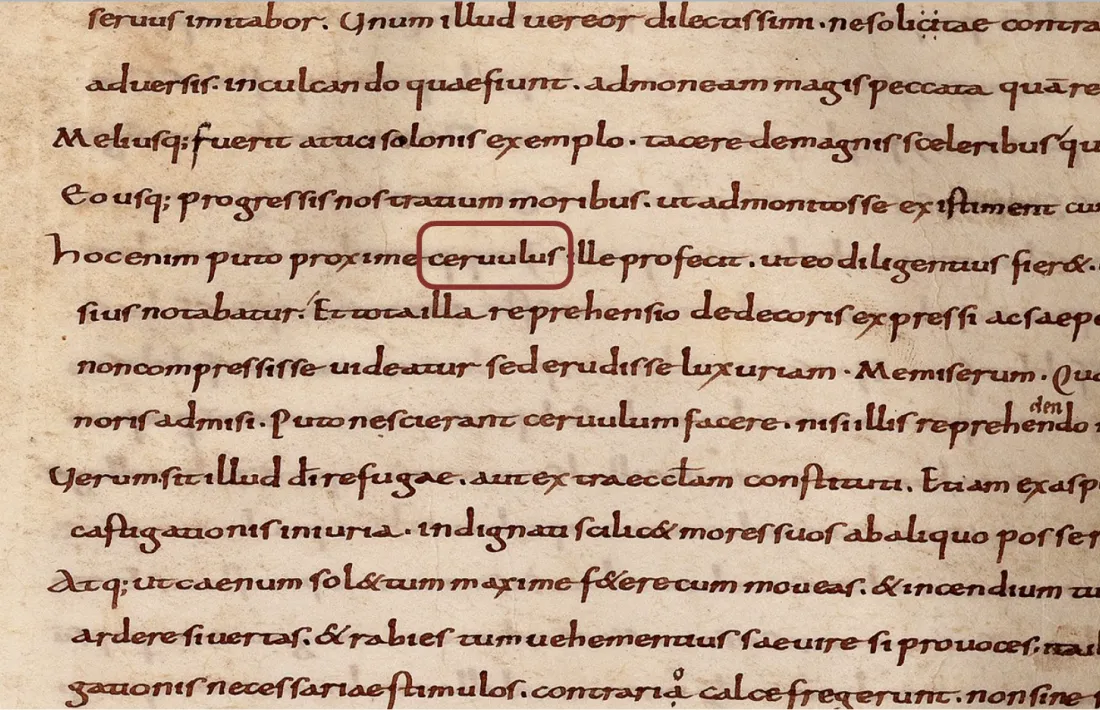 seruus imitabor. Unum illud uereor dilectissimi. nesolicitae contra
aduersis. inculcando quaefiunt. admoneam magis peccata quā re
Meliusq; fuerit atticisolonis exemplo. tacere demagnis sceleribus qu
Eo usq; progressis nostratium moribus. ut admonitosse existiment cu
hocenim puto proxime ceruulus ille profecit. uteo diligentius fier&.
sius notabatur. Et tota illa reprehensio dedecoris expressi acsaepe
noncompressisse uideatur sed erudisse luxuriam. Memiserum. Qu
noris admisi. Puto nescierant ceruulum facere. nisi illis reprehendo
den
Uerumsit illud
refugae. aut ex
constituti. Etiam exasp
castigationis iniuria. indignati scilic& mores suos abaliquo posser
Atq; ut caenum sol&tum maxime f&ere cum moueas. & incendium tu
ardere siuertas. & rabies tum uehementius saeuire si prouoces.
gationis necessariae stimulos. contraria calce fregerunt. non sine